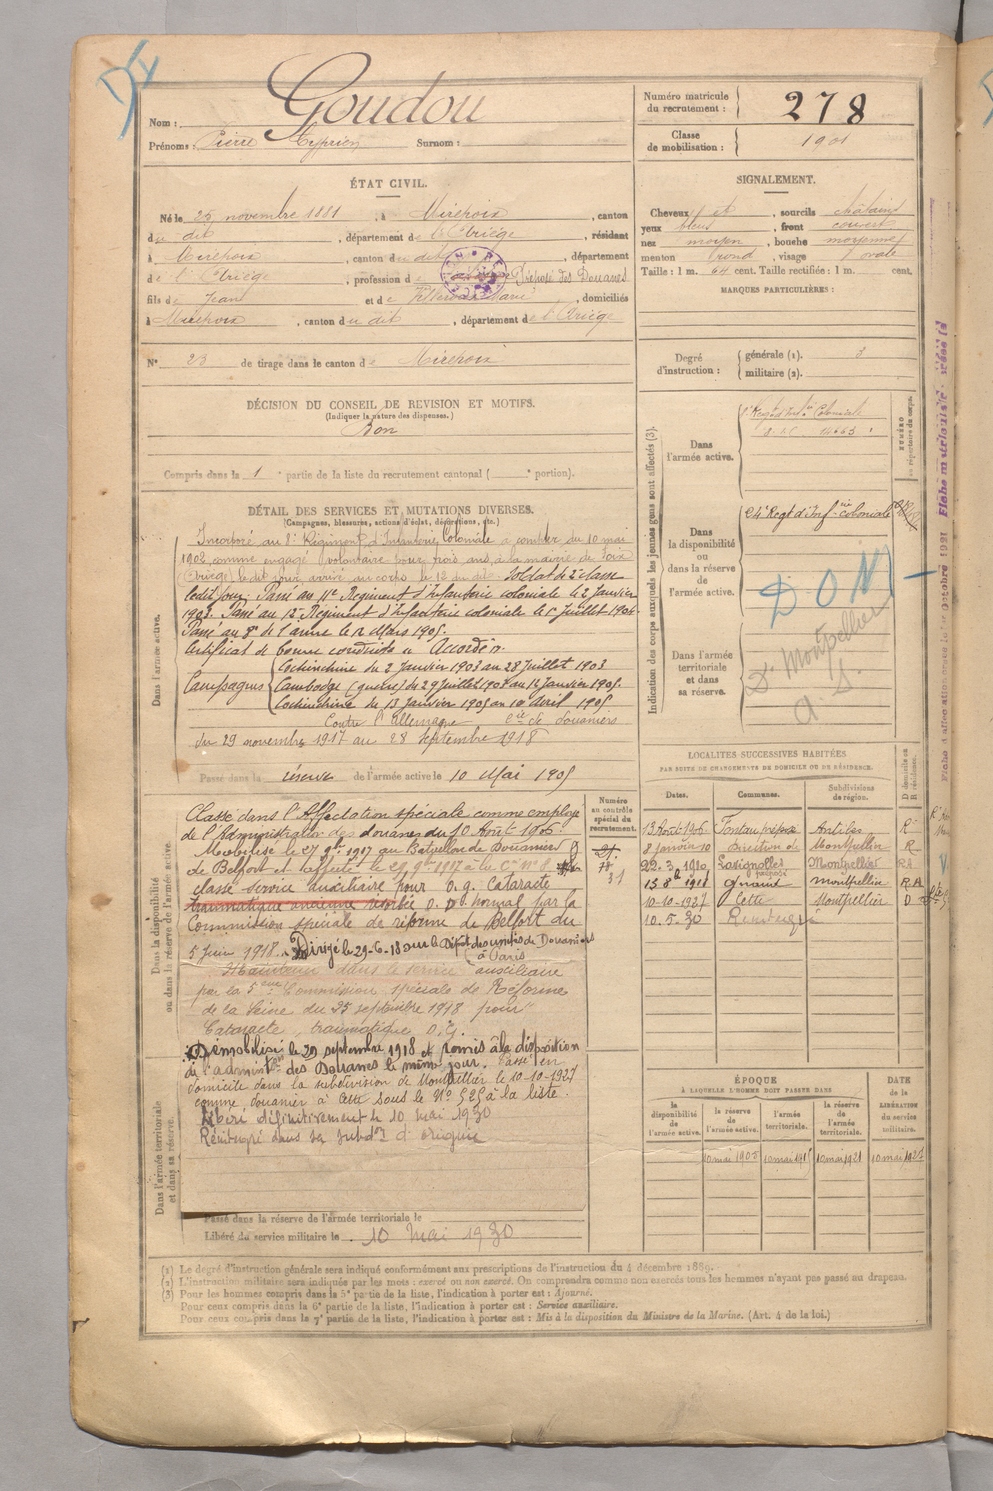 Nom : Goudou
Prénoms : Pierre Cyprien Surnom :
Numéro matricule du recrutement : 278
Classe de mobilisation : 1901
ÉTAT CIVIL.
Né le 25 novembre 1881, à Mirepoix, canton
du dit, département de l'Ariège, résidant
à Mirepoix, canton du dit, département
de l'Ariège, profession de Préposé des Douanes
fils de Jean et de Marie, domiciliés
à Mirepoix, canton du dit, département de l'Ariège
N° 23 de tirage dans le canton de Mirepoix
SIGNALEMENT.
Cheveux, sourcils châtains
yeux bleus, front couvert
nez moyen, bouche moyenne
menton rond, visage ovale
Taille : 1 m. 64 cent. Taille rectifiée : 1 m. cent.
MARQUES PARTICULIÈRES :
Degré d'instruction : générale (1). 3
militaire (2).
DÉCISION DU CONSEIL DE REVISION ET MOTIFS.
(Indiquer la nature des dispenses.)
Bon
Compris dans la 1 e partie de la liste du recrutement cantonal ( e portion).
DÉTAIL DES SERVICES ET MUTATIONS DIVERSES.
(Campagnes, blessures, actions d'éclat, décorations, etc.)
Dans l'armée active.
Incorporé au 8e Régiment d'Infanterie Coloniale à compter du 10 mai
1902 comme engagé volontaire pour trois ans, à la mairie de Foix
(Ariège) le dit jour, arrivé au corps le 12 du dit. Soldat de 2e classe
ledit jour. Passé au 11e Régiment d'Infanterie coloniale le 2 Janvier
1903. Passé au 12e Régiment d'Infanterie coloniale le 1er Juillet 1904.
Passé au 8e de l'arme le 12 Mars 1905.
Certificat de bonne conduite « Accordé ».
Campagnes { Cochinchine du 2 Janvier 1903 au 28 Juillet 1903
Cambodge (guerre) du 29 Juillet 1903 au 12 Janvier 1905.
Cochinchine du 13 Janvier 1905 au 10 Avril 1905
Contre l'Allemagne, Cie de douaniers
du 29 novembre 1917 au 28 septembre 1918
Passé dans la réserve de l'armée active le 10 Mai 1905
Indication des corps auxquels les jeunes gens sont affectés (3).
Dans l'armée active.
NUMÉRO au répertoire du corps.
Dans la disponibilité ou dans la réserve de l'armée active.
24e Regt d'Infie coloniale
DON
Dans l'armée territoriale et dans sa réserve.
Dn Montpellier
LOCALITÉS SUCCESSIVES HABITÉES
PAR SUITE DE CHANGEMENTS DE DOMICILE OU DE RÉSIDENCE.
Dates. Communes. Subdivisions de région. D domicile ou R résidence.
13 Août 1906 Antibes R
8 janvier 10 Direction de Montpellier R
22.3.1910 Montpellier RA
Montpellier R.A
10-10-1927 Cette Montpellier D
10.5.30
Dans la disponibilité ou dans la réserve de l'armée active.
Numéro au contrôle spécial du recrutement.
Classé dans l'Affectation spéciale comme employé
de l'Administration des douanes du 10 Août 1906.
Mobilisé le 27 9bre 1917 au Bataillon de Douaniers
de Belfort et affecté le 29 9bre 1917 à la Cie N° 8
classé service auxiliaire pour O.g. Cataracte
traumatique ancienne O.D. normal par la
Commission spéciale de réforme de Belfort du
5 Juin 1918. Dirigé le 29-6-18 sur le Dépôt des unités de Douaniers
à Paris
Maintenu dans le service auxiliaire
par la 5eme Commission spéciale de Réforme
de la Seine du 25 septembre 1918 pour
Cataracte traumatique O.G.
Démobilisé le 29 septembre 1918 et remis à la disposition
de l'adminton des Douanes le même jour. Passé en
domicile dans la subdivision de Montpellier le 10-10-1927
comme douanier à Cette sous le N° 525 à la liste.
Libéré définitivement le 10 mai 1930
Réintégré dans sa subdon d'origine
ÉPOQUE
À LAQUELLE L'HOMME DOIT PASSER DANS
la disponibilité de l'armée active. la réserve de l'armée active. l'armée territoriale. la réserve de l'armée territoriale.
DATE de la LIBÉRATION du service militaire.
10 mai 1905 10 mai 1915 10 mai 1921 10 mai 1927
Dans l'armée territoriale et dans sa réserve.
Passé dans la réserve de l'armée territoriale le
Libéré du service militaire le 10 Mai 1930
(1) Le degré d'instruction générale sera indiqué conformément aux prescriptions de l'instruction du 4 décembre 1889.
(2) L'instruction militaire sera indiquée par les mots : exercé ou non exercé. On comprendra comme non exercés tous les hommes n'ayant pas passé au drapeau.
(3) Pour les hommes compris dans la 5e partie de la liste, l'indication à porter est : Ajourné.
Pour ceux compris dans la 6e partie de la liste, l'indication à porter est : Service auxiliaire.
Pour ceux compris dans la 7e partie de la liste, l'indication à porter est : Mis à la disposition du Ministre de la Marine. (Art. 4 de la loi.)